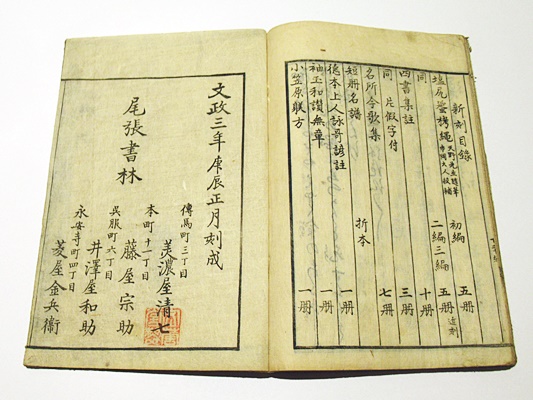 新刻目録 初編 五册
二編三編 五册 近刻
同 十册
四書集註 三册
同 片假字付 七册
名所今歌集 折本
短册名譜 一册
徳本上人詠哥諺註 一册
袖玉和讃無章 一册
小笠原 方 一册
文政三年庚辰正月刻成
尾張書林
傳馬町三丁目
美濃屋清七
本町十一丁目
藤屋宗助
呉服町六丁目
井澤屋和助
永安寺町四丁目
菱屋金兵衞